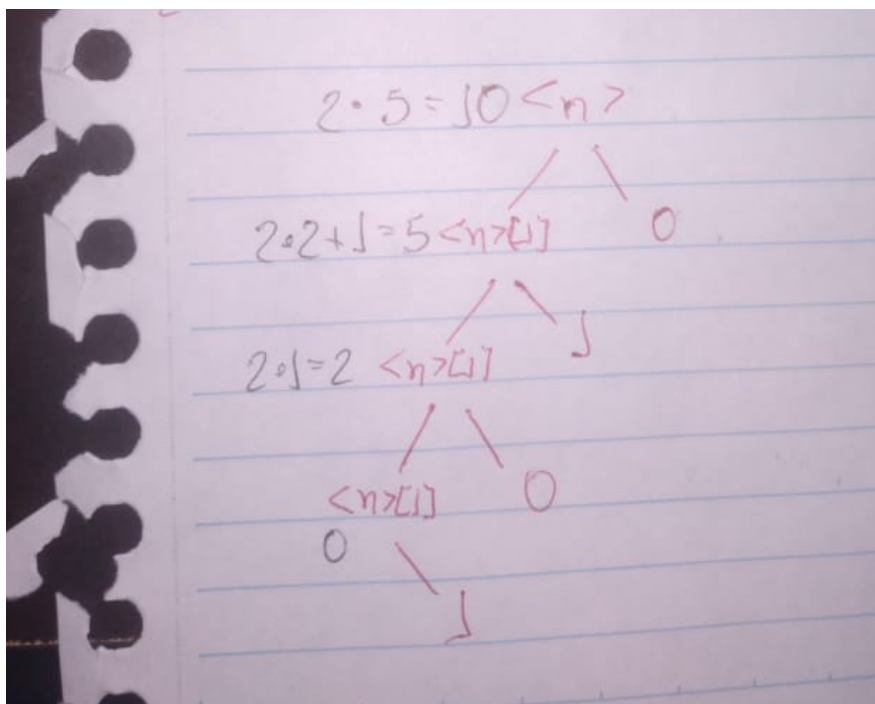 2 · 5 = 10 <n>
2·2+1=5 <n>[1] 0
2·1=2 <n>[1] 1
<n>[1] 0
0 1